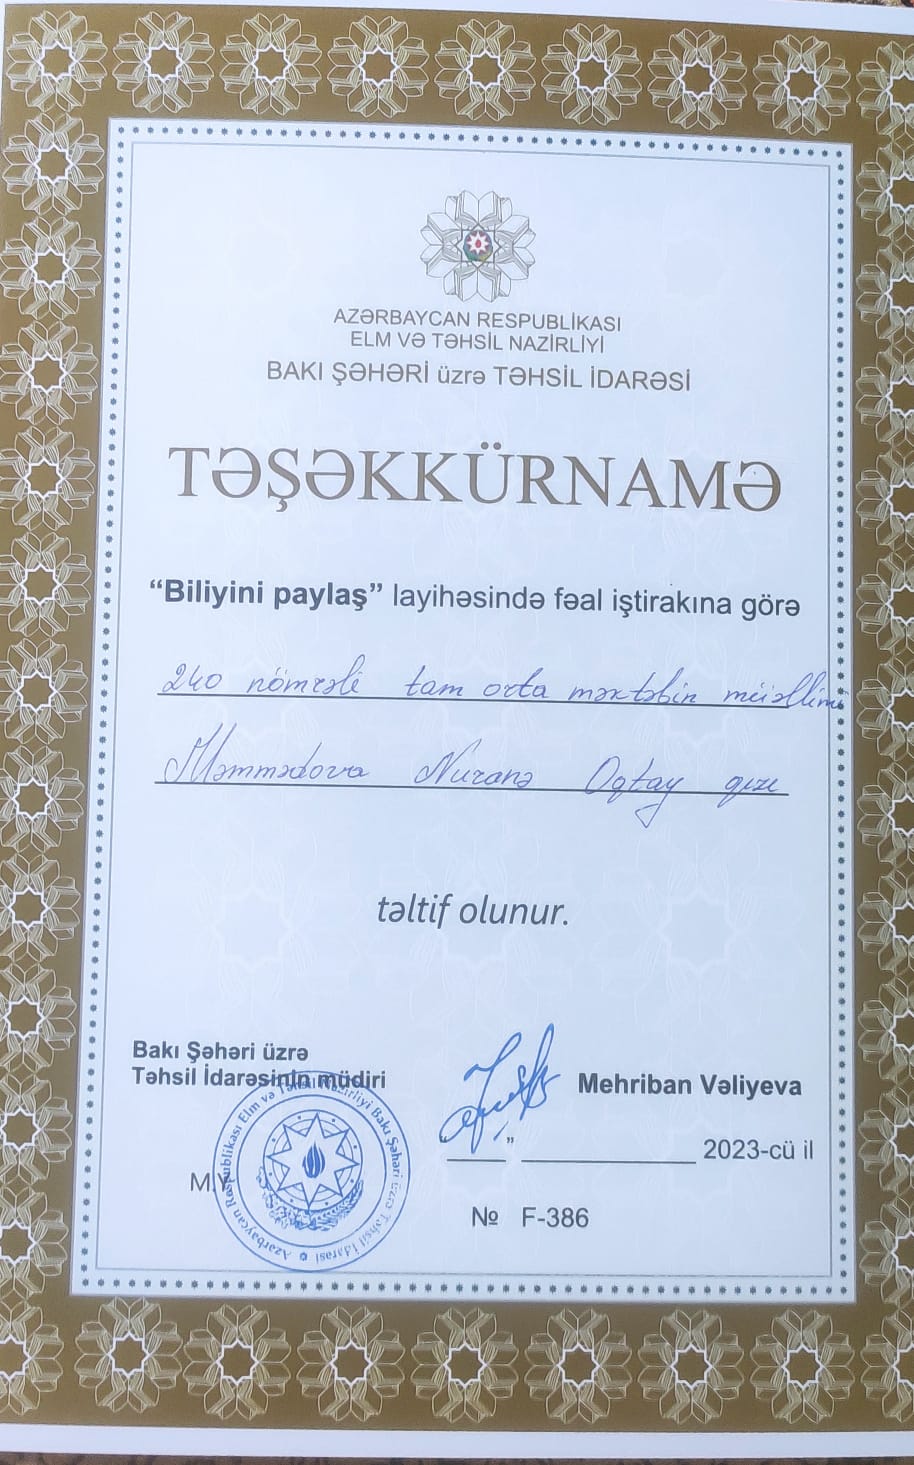 AZƏRBAYCAN RESPUBLİKASI
ELM VƏ TƏHSİL NAZİRLİYİ
BAKI ŞƏHƏRİ üzrə TƏHSİL İDARƏSİ
TƏŞƏKKÜRNAMƏ
“Biliyini paylaş” layihəsində fəal iştirakına görə
240 nömrəli tam orta məktəbin müəllimi
Məmmədova Nuranə Oqtay qızı
təltif olunur.
Bakı Şəhəri üzrə
Təhsil İdarəsinin müdiri
Mehriban Vəliyeva
” 2023-cü il
M.Y.
№ F-386
Azərbaycan Respublikası Elm və Təhsil Nazirliyi Bakı Şəhəri üzrə Təhsil İdarəsi